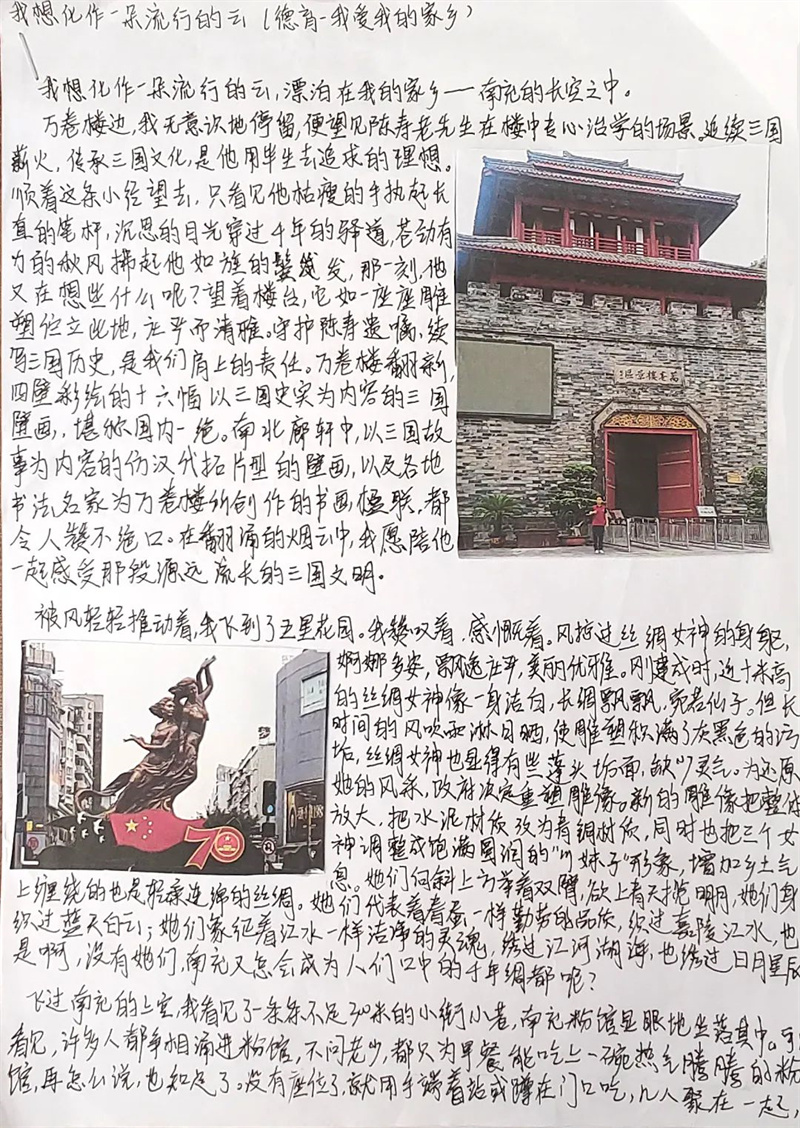 我想化作一朵流行的云（德育-我爱我的家乡）
我想化作一朵流行的云，漂泊在我的家乡——南充的长空之中。
万卷楼边，我无意识地停留，便望见陈寿老先生在楼中专心治学的场景。延续三国
薪火，传承三国文化，是他用半生去追求的理想。
顺着这条小径望去，只看见他枯瘦的手执起长
直的笔杆，沉思的目光穿过千年的驿道，苍劲有
力的秋风拂起他如旌的鬓发，那一刻，他
又在想些什么呢？望着楼台，它如一座座雕
塑伫立此地，庄严而清雅。守护陈寿遗嘱，续
写三国历史，是我们肩上的责任。万卷楼翻新，
四壁彩绘的十六幅以三国史实为内容的三国
壁画，堪称国内一绝。南北廊轩中，以三国故
事为内容的仿汉代拓片型的壁画，以及各地
书法名家为万卷楼所创作的书画楹联，都
令人赞不绝口。在翻涌的烟云中，我愿陪他
一起感受那段源远流长的三国文明。
万卷楼景区
被风轻轻推动着，我飞到了五星花园。我赞叹着，感慨着。风掠过丝绸女神的身躯，
婀娜多姿，飘逸庄严，美丽优雅。刚建成时，近十米高
的丝绸女神像一身洁白，长绸飘飘，宛若仙子。但长
时间的风吹雨淋日晒，使雕塑积满了灰黑色的污
垢，丝绸女神也显得有些蓬头垢面，缺少灵气。为还原
她的风采，政府决定重塑雕像。新的雕像把整体
放大，把水泥材质改为青铜材质，同时也把三个女
神调整成饱满圆润的"川妹子"形象，增加乡土气
息。她们向斜上方举着双臂，欲上青天揽明月，她们身
上缠绕的也是轻柔连绵的丝绸。她们代表着春蚕一样勤劳的品质，织过嘉陵江水，也
织过蓝天白云；她们象征着江水一样洁净的灵魂，绕过江河湖海，也绕过日月星辰
是啊，没有她们，南充又怎会成为人们口中的千年绸都呢？
70
飞过南充的上空，我看见了一条条不足30米的小街小巷，南充粉馆显眼地坐落其中。可
看见，许多人都争相涌进粉馆，不问老少，都只为早餐能吃上一碗热气腾腾的粉
馆，再怎么说，也知足了。没有座位了，就用手端着站或蹲在门口吃，几人聚在一起，